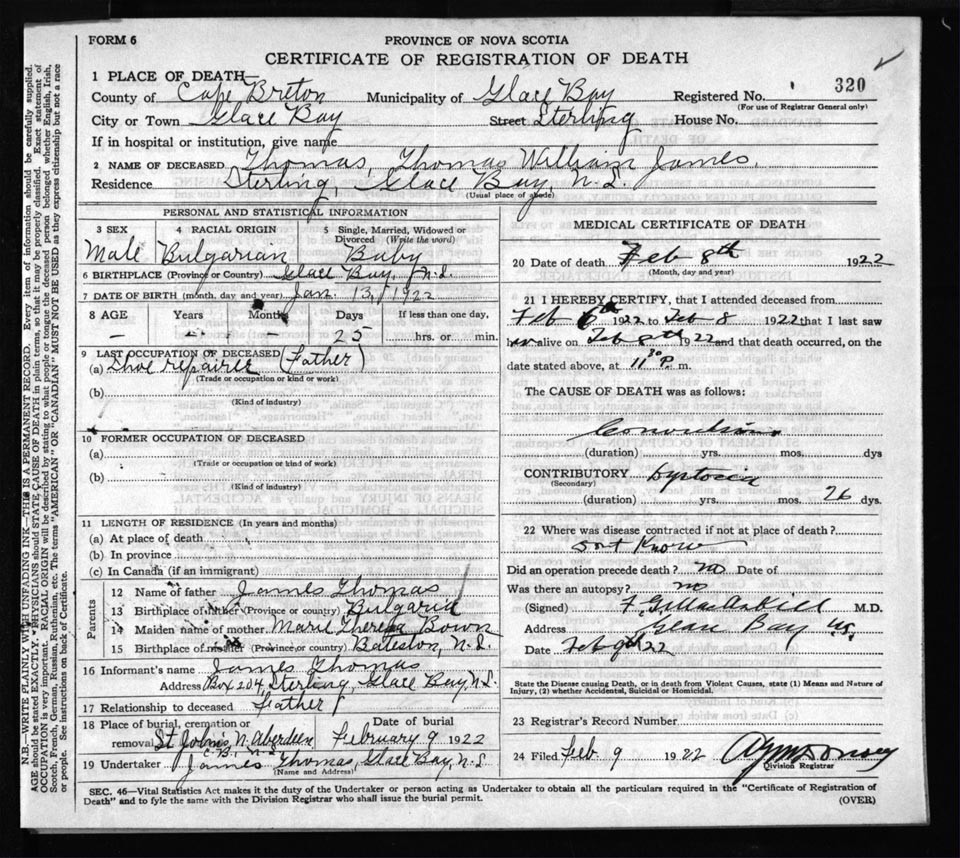 FORM 6
PROVINCE OF NOVA SCOTIA
CERTIFICATE OF REGISTRATION OF DEATH
320
1 PLACE OF DEATH—
County of Cape Breton Municipality of Glace Bay Registered No.
(For use of Registrar General only)
City or Town Glace Bay Street Sterling House No.
If in hospital or institution, give name
2 NAME OF DECEASED Thomas, Thomas William James.
Residence Sterling, Glace Bay, N.S.
(Usual place of abode)
PERSONAL AND STATISTICAL INFORMATION
3 SEX 4 RACIAL ORIGIN 5 Single, Married, Widowed or Divorced (Write the word)
Male Bulgarian Baby
6 BIRTHPLACE (Province or Country) Glace Bay, N.S.
7 DATE OF BIRTH (month, day and year) Jan. 13, 1922
8 AGE Years Months Days If less than one day,
– – 25 hrs. or min.
9 LAST OCCUPATION OF DECEASED (Father)
(a) Shoe repairer
(Trade or occupation or kind or work)
(b)
(Kind of industry)
10 FORMER OCCUPATION OF DECEASED
(a)
(Trade or occupation or kind of work)
(b)
(Kind of industry)
11 LENGTH OF RESIDENCE (In years and months)
(a) At place of death
(b) In province
(c) In Canada (if an immigrant)
Parents
12 Name of father James Thomas
13 Birthplace of father (Province or country) Bulgaria
14 Maiden name of mother Marie Theresa Bown
15 Birthplace of mother (Province or country) Bateston, N.S.
16 Informant's name James Thomas
Address Box 204, Sterling, Glace Bay, N.S.
17 Relationship to deceased Father
18 Place of burial, cremation or removal Date of burial
St John's N. Aberdeen C.B. February 9 1922
19 Undertaker James Thomas, Glace Bay, N.S.
(Name and Address)
MEDICAL CERTIFICATE OF DEATH
20 Date of death Feb 8th 1922
(Month, day and year)
21 I HEREBY CERTIFY, that I attended deceased from
Feb 6th 1922 to Feb 8 1922 that I last saw
alive on Feb 8th 1922 and that death occurred, on the
date stated above, at 11 30 P. m.
The CAUSE OF DEATH was as follows:
Convulsions
(duration) yrs. mos. dys
CONTRIBUTORY Dystocia
(Secondary)
(duration) yrs. mos. 26 dys.
22 Where was disease contracted if not at place of death?
Dont Know
Did an operation precede death? no Date of
Was there an autopsy? no
(Signed) M.D.
Address Glace Bay N.S.
Date Feb 9th 22
State the Disease causing Death, or in death from Violent Causes, state (1) Means and Nature of
Injury, (2) whether Accidental, Suicidal or Homicidal.
23 Registrar's Record Number
24 Filed Feb. 9 1922
Division Registrar
SEC. 46—Vital Statistics Act makes it the duty of the Undertaker or person acting as Undertaker to obtain all the particulars required in the "Certificate of Registration of
Death" and to fyle the same with the Division Registrar who shall issue the burial permit. (OVER)
N.B.—WRITE PLAINLY WITH UNFADING INK—THIS IS A PERMANENT RECORD. Every item of information should be carefully supplied.
AGE should be stated EXACTLY. PHYSICIANS should STATE CAUSE OF DEATH in plain terms, so that it may be properly classified. Exact statement of
OCCUPATION is very important. RACIAL ORIGIN will be described by stating to what people or tongue the deceased person belonged whether English, Irish,
Scotch, French, German, Russian, Ruthenian, etc. The terms "AMERICAN" OR "CANADIAN" MUST NOT BE USED as they express citizenship but not a race
or people. See instructions on back of Certificate.